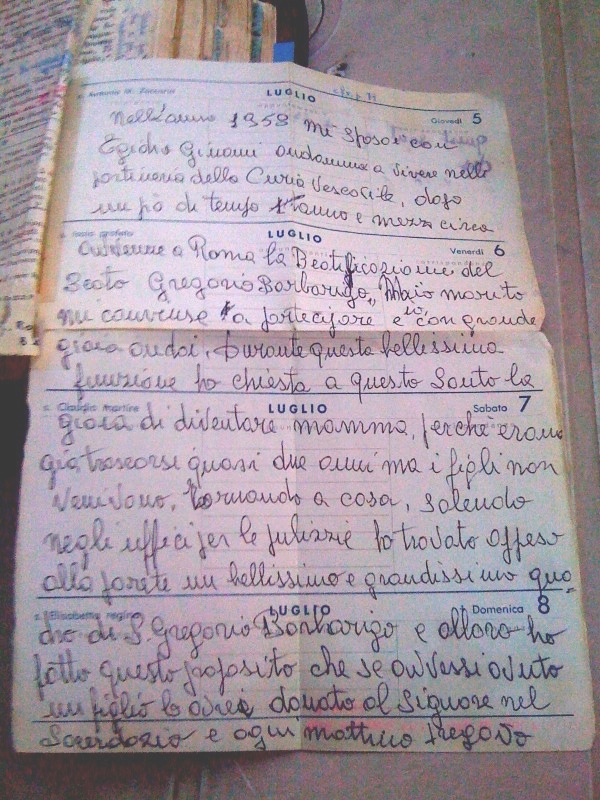 LUGLIO
Giovedì 5
Nell'anno 1958 mi sposai con
Egidio andammo a vivere nella
portineria della Curia Vescovile, dopo
un pò di tempo 1 anno e mezzo circa
LUGLIO
Venerdì 6
avvenne a Roma la Beatificazione del
Beato Gregorio Barbarigo, Maio marito
mi convinse a partecipare e io, con grande
gioia andai. Durante questa bellissima
funzione ho chiesta a questo Santo la
s. Claudio martire
LUGLIO
Sabato 7
gioia di diventare mamma, perchè erano
già trascorsi quasi due anni ma i figli non
venivano, tornando a casa, salendo
negli uffici per le pulizzie ho trovato appeso
alla parete un bellissimo e grandissimo qua-
s. Elisabetta regina
LUGLIO
Domenica 8
dro di S. Gregorio Barbarigo e allora ho
fatto questo proposito che se avvessi avuto
un figlio lo avrei donato al Signore nel
Sacerdozio e ogni mattino pregavo